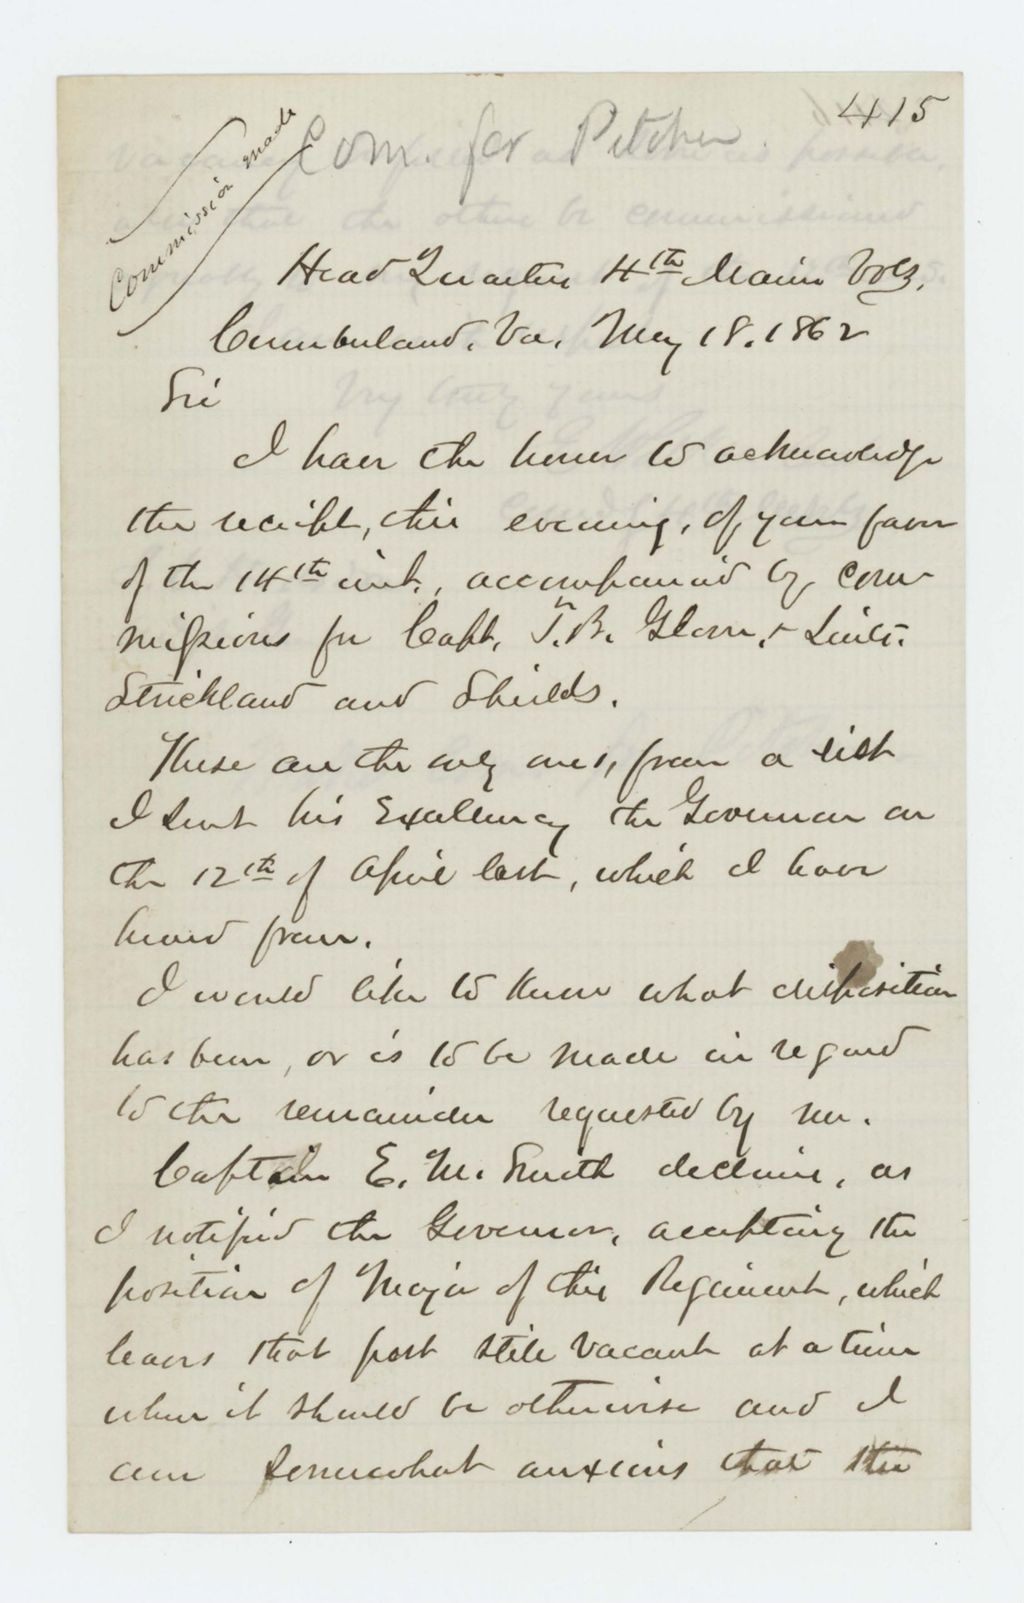 415
Commission made
Com. for Pitcher.
Head Quarters 4th Maine Vols,
Cumberland, Va, May 18. 1862
Sir
I have the honor to acknowledge
the receipt, this evening, of your favor
of the 14th inst., accompanied by com-
missions for Capt. T. B. Glover, & Lieuts.
Strickland and Shields.
These are the only ones, from a list
I sent his Excellency the Governor on
the 12th of April last, which I have
heard from.
I would like to know what disposition
has been, or is to be made in regard
to the remainder requested by me.
Captain E. M. Smith declines, as
I notified the Governor, accepting the
position of Major of this Regiment, which
leaves that post still vacant at a time
when it should be otherwise and I
am somewhat anxious that the